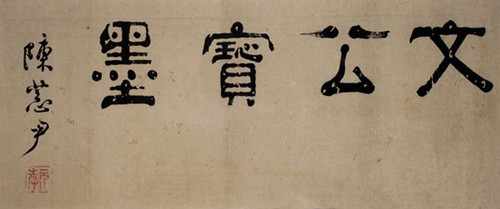 文公寶墨
陳恭尹